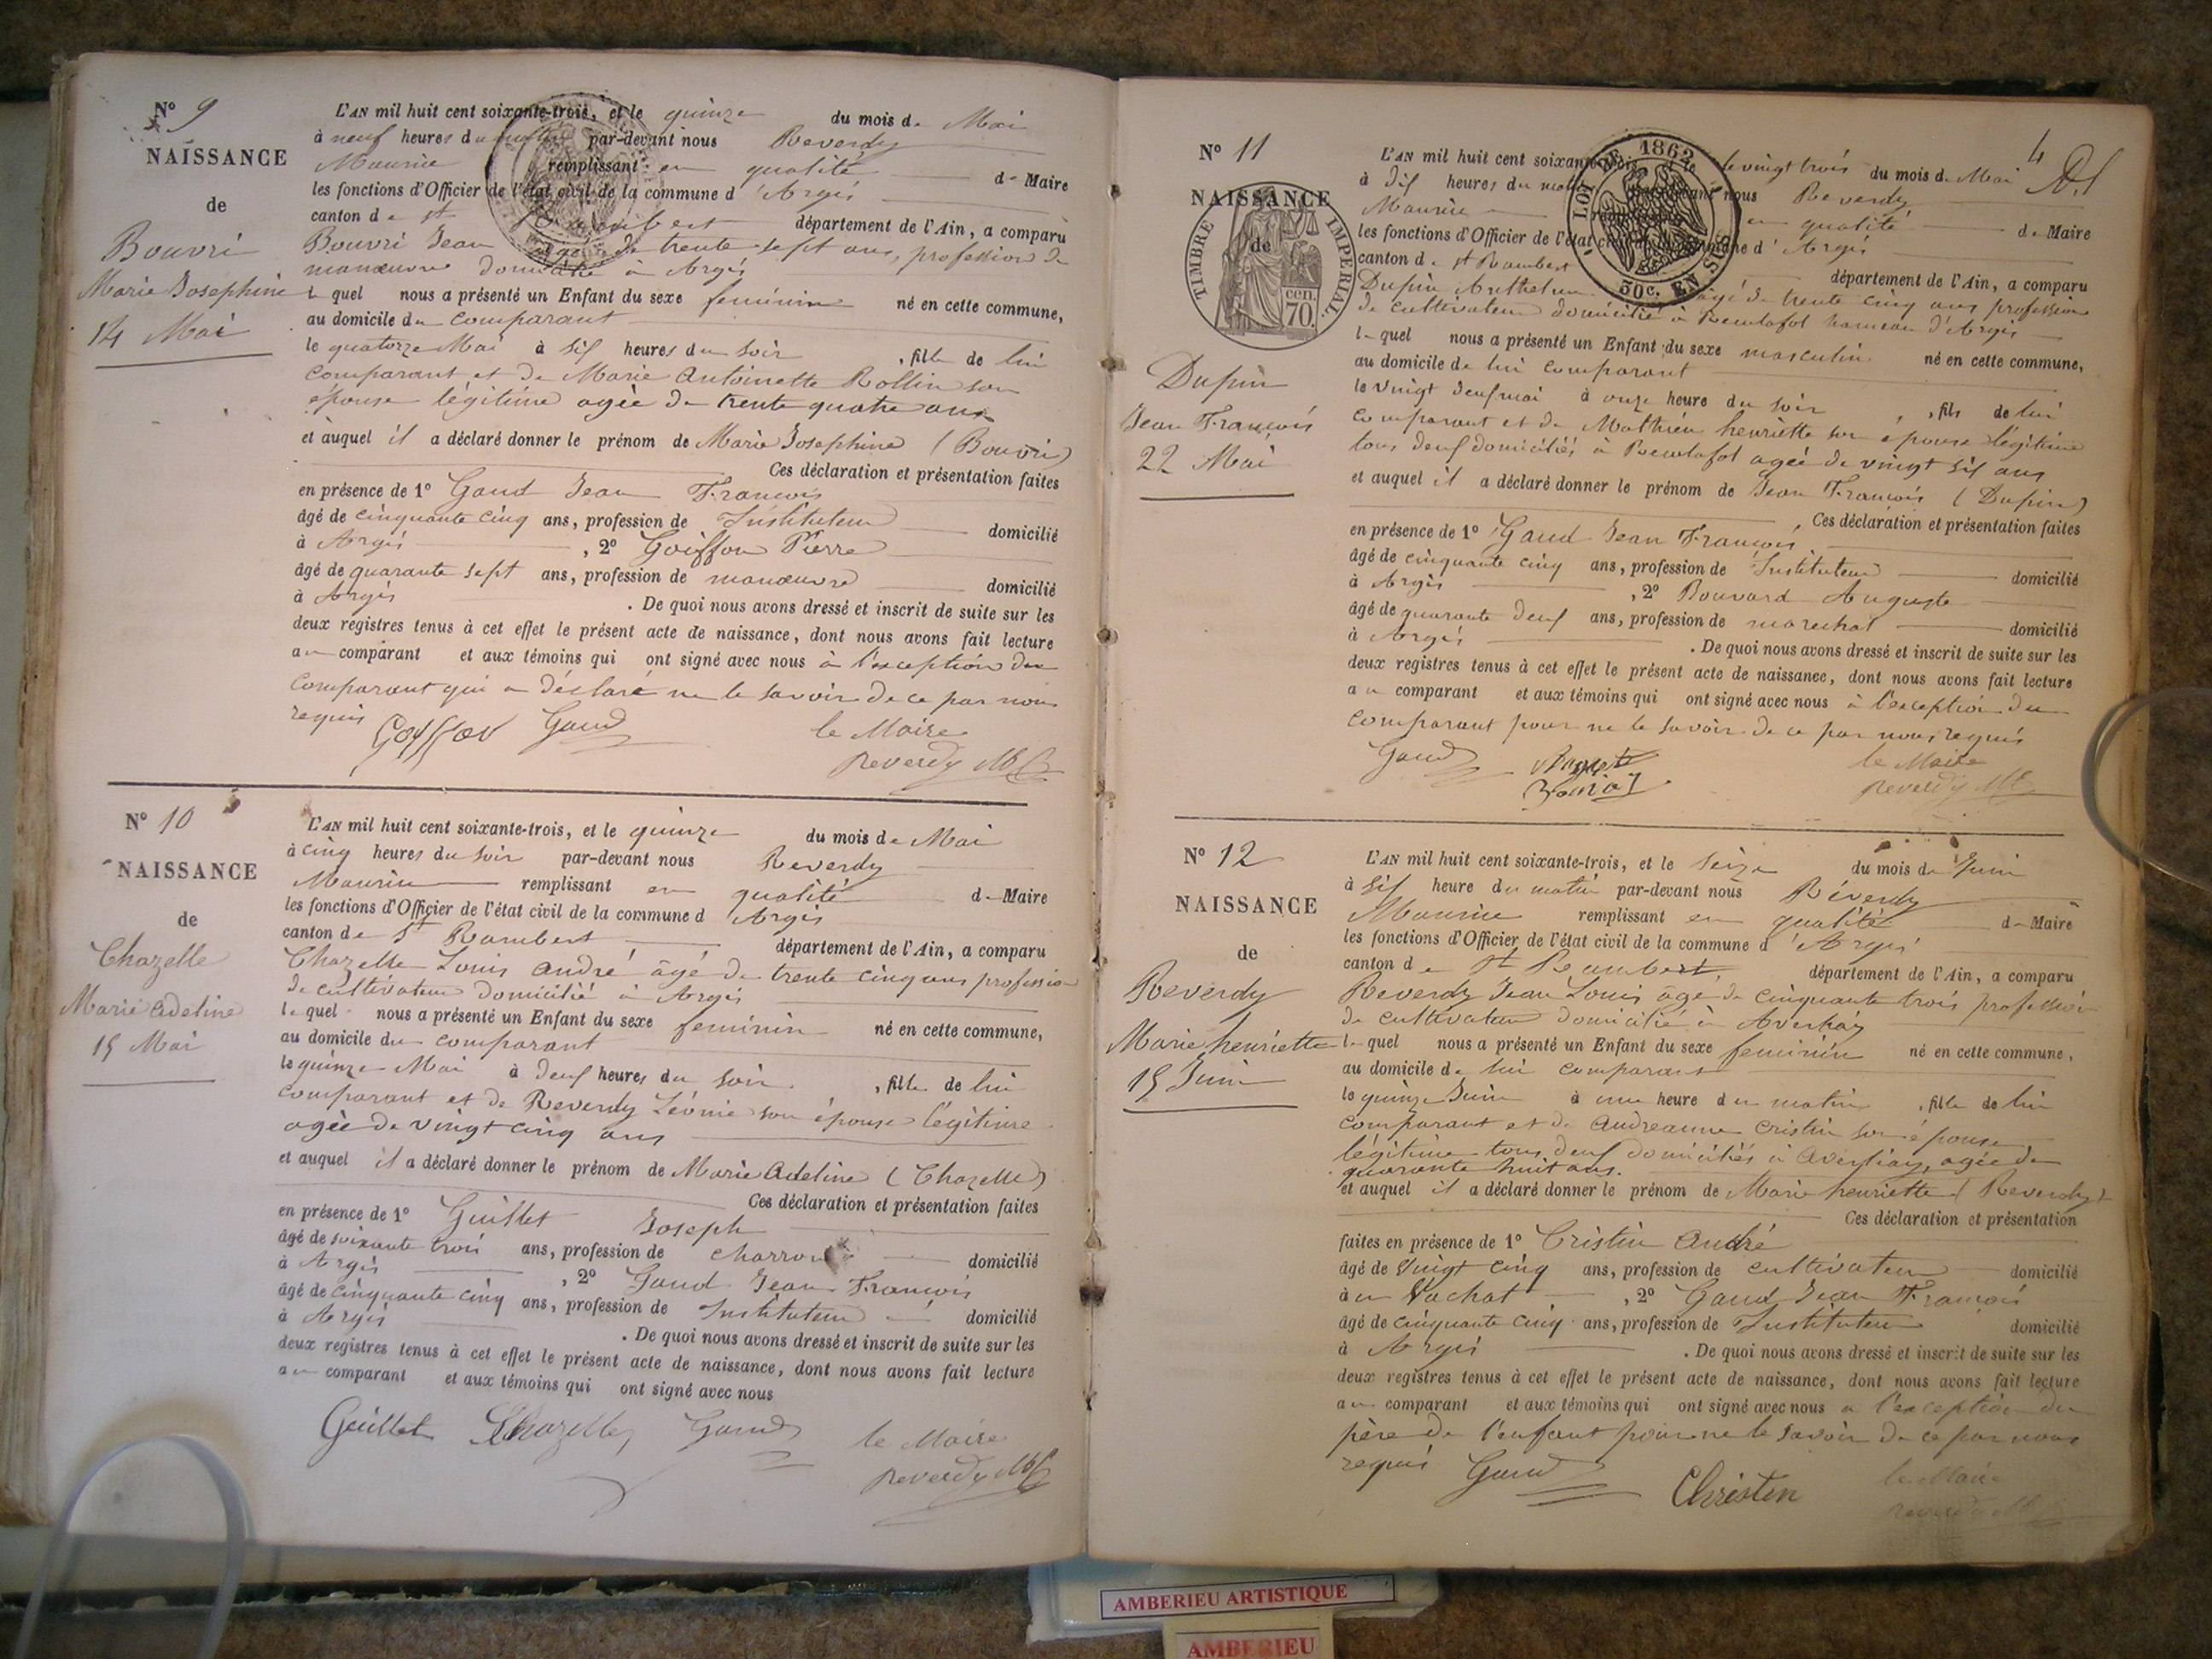 Nº 9
NAISSANCE
de
Bouvri
Marie Josephine
14 Mai
L'AN mil huit cent soixante-trois, et le quinze du mois de Mai
à neuf heures du matin par-devant nous Reverdy
Maurice remplissant en qualité de Maire
les fonctions d'Officier de l'état civil de la commune d'Argis
canton de St Rambert département de l'Ain, a comparu
Bouvri Jean âgé de trente sept ans, profession de
manœuvre domicilié à Argis
lequel nous a présenté un Enfant du sexe feminin né en cette commune,
au domicile du comparant
le quatorze Mai à six heures du soir, fille de lui
comparant et de Marie Antoinette Rollin son
épouse légitime agée de trente quatre ans
et auquel il a déclaré donner le prénom de Marie Josephine (Bouvri)
Ces déclaration et présentation faites
en présence de 1º Gaud Jean François
âgé de cinquante cinq ans, profession de Instituteur domicilié
à Argis, 2º Goiffon Pierre
âgé de quarante sept ans, profession de manœuvre domicilié
à Argis. De quoi nous avons dressé et inscrit de suite sur les
deux registres tenus à cet effet le présent acte de naissance, dont nous avons fait lecture
au comparant et aux témoins qui ont signé avec nous à l'exception du
comparant qui a déclaré ne le savoir de ce par nous
requis
Goiffon Gaud le Maire
Reverdy
Nº 10
NAISSANCE
de
Chazelle
Marie Adeline
15 Mai
L'AN mil huit cent soixante-trois, et le quinze du mois de Mai
à cinq heures du soir par-devant nous Reverdy
Maurice remplissant en qualité de Maire
les fonctions d'Officier de l'état civil de la commune d Argis
canton de St Rambert département de l'Ain, a comparu
Chazelle Louis André âgé de trente cinq ans profession
de cultivateur domicilié à Argis
lequel nous a présenté un Enfant du sexe feminin né en cette commune,
au domicile du comparant
le quinze Mai à deux heures du soir, fille de lui
comparant et de Reverdy Léonie son épouse légitime
agée de vingt cinq ans
et auquel il a déclaré donner le prénom de Marie Adeline (Chazelle)
Ces déclaration et présentation faites
en présence de 1º Guillet Joseph
âgé de soixante trois ans, profession de charron domicilié
à Argis, 2º Gaud Jean François
âgé de cinquante cinq ans, profession de Instituteur domicilié
à Argis. De quoi nous avons dressé et inscrit de suite sur les
deux registres tenus à cet effet le présent acte de naissance, dont nous avons fait lecture
au comparant et aux témoins qui ont signé avec nous
Guillet Chazelle Gaud le Maire
Reverdy
4
Nº 11
NAISSANCE
de
TIMBRE IMPERIAL
cen. 70
Dupin
Jean François
22 Mai
LOI DE 1862
50c. EN SUS
L'AN mil huit cent soixante le vingt trois du mois de Mai
à dix heures du matin nous Reverdy
Maurice en qualité de Maire
les fonctions d'Officier de l'état d'Argis
canton de St Rambert département de l'Ain, a comparu
Dupin Anthelme âgé de trente cinq ans profession
de cultivateur domicilié à hameau d'Argis
lequel nous a présenté un Enfant du sexe masculin né en cette commune,
au domicile de lui comparant
le vingt deux mai à onze heure du soir, fils de lui
comparant et de Mathieu henriette son épouse légitime
tous deux domiciliés à agée de vingt six ans
et auquel il a déclaré donner le prénom de Jean François (Dupin)
Ces déclaration et présentation faites
en présence de 1º Gaud Jean François
âgé de cinquante cinq ans, profession de Instituteur domicilié
à Argis, 2º Bouvard Auguste
âgé de quarante deux ans, profession de marechal domicilié
à Argis. De quoi nous avons dressé et inscrit de suite sur les
deux registres tenus à cet effet le présent acte de naissance, dont nous avons fait lecture
au comparant et aux témoins qui ont signé avec nous à l'exception du
comparant pour ne le savoir de ce par nous requis
Gaud le Maire
Reverdy
Nº 12
NAISSANCE
de
Reverdy
Marie henriette
15 Juin
L'AN mil huit cent soixante-trois, et le seize du mois de Juin
à six heure du matin par-devant nous Réverdy
Maurice remplissant en qualité de Maire
les fonctions d'Officier de l'état civil de la commune d'Argis
canton de St Rambert, département de l'Ain, a comparu
Reverdy Jean Louis âgé de cinquante trois profession
de cultivateur domicilié à
lequel nous a présenté un Enfant du sexe feminin né en cette commune,
au domicile de lui comparant
le quinze Juin à une heure du matin, fille de lui
comparant et de Andréanne Cristin son épouse
légitime tous deux domiciliés à agée de
quarante huit ans.
et auquel il a déclaré donner le prénom de Marie henriette (Reverdy)
Ces déclaration et présentation
faites en présence de 1º Cristin André
âgé de vingt cinq ans, profession de cultivateur domicilié
à Vachat, 2º Gaud Jean François
âgé de cinquante cinq ans, profession de Instituteur domicilié
à Argis. De quoi nous avons dressé et inscrit de suite sur les
deux registres tenus à cet effet le présent acte de naissance, dont nous avons fait lecture
au comparant et aux témoins qui ont signé avec nous a l'exception du
père de l'enfant pour ne le savoir de ce par nous
requis Gaud Christen le Maire
Reverdy
AMBERIEU ARTISTIQUE
AMBERIEU